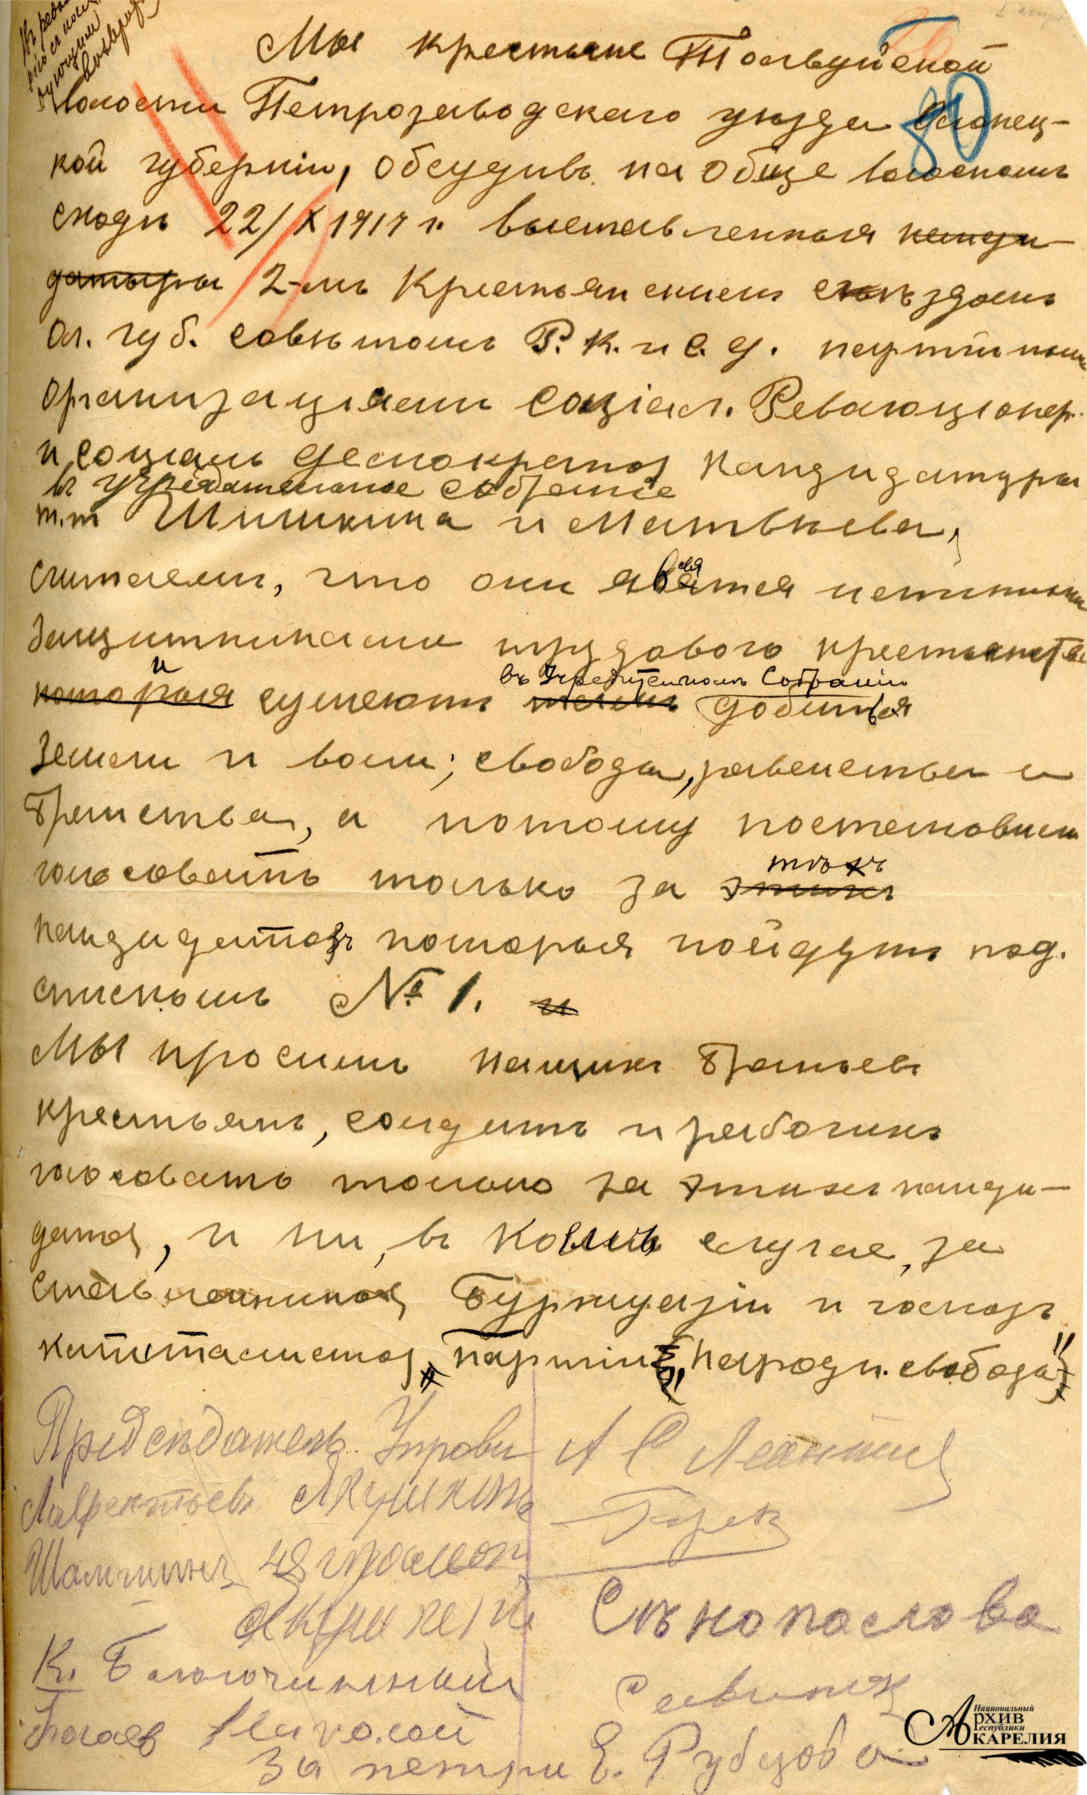 Мы крестьяне Толвуйской
волости Петрозаводскаго уѣзда Олонец-
80
кой губерніи, обсудивъ на обще волостномъ
сходѣ 22/X 1917 г. выставленныя канди-
датуры 2-мъ Крестьянскимъ съѣздомъ
Ол. губ. совѣтомъ Р. К. и С. Д. партійными
организаціями Соціал. Революціонер.
и социаль демократов кандидатуры
въ Учредительное Собраніе
т.т. Шишкина и Матвѣева,
считаемъ, что они явятся истинными
защитниками трудового крестьянства
и
которыя сумеютъ добиться
въ Учредительномъ Собраніи
земли и воли; свободы, равенства и
братства, а потому постановили
голосовать только за этихъ
тѣхъ
кандидатовъ которыя пойдутъ под.
спискомъ № 1. и
Мы просимъ нашихъ братьевъ
крестьянъ, солдатъ и рабочихъ
голосовать только за этихъ канди-
датов, и ни, въ коемъ случае, за
ставленников буржуазіи и господъ
капиталистов, "партіи "Народн. свобода"
Предсѣдатель Управы А С Леонтьев
Лаврентьевъ Якушкинъ
Шамшинъ
Сѣнопослова
К. Благочинный
Савинъ
Николай
За петри Е. Рубцова
Национальный
Архив
Республики
Карелия